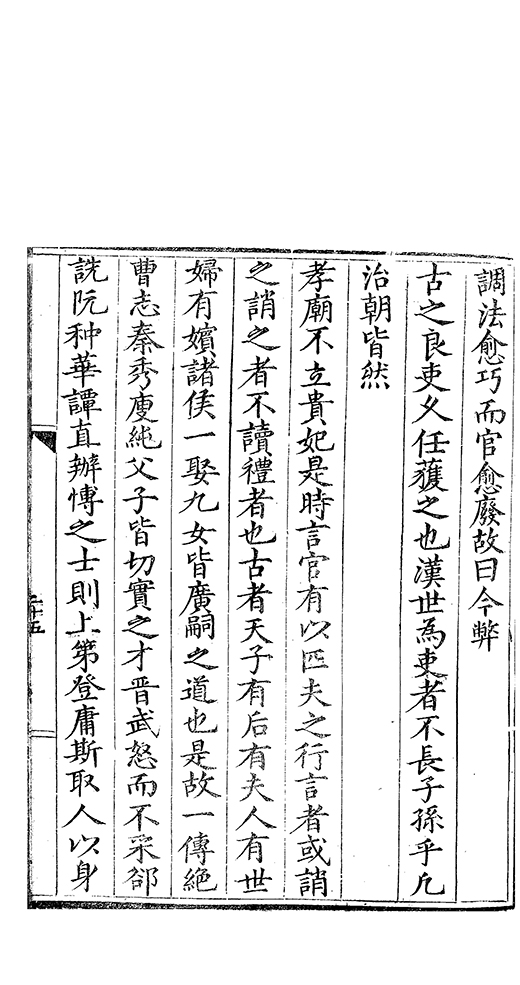 調法愈巧而官愈廢故曰今弊
古之良吏久任蔓之也漢世為吏者不長子孫乎凡
治朝皆然
孝廟不立貴妃是時言官有以匹夫之行言者或誚
之誚之者不讀禮者也古者天子有后有夫人有世
婦有嬪諸侯一娶九女皆廣嗣之道也是故一傳絶
曹志秦秀庾純父子皆切實之才晋武怒而不采郤
詵阮种華譚直辦愽之士則上第登庸斯取人以身
二十五